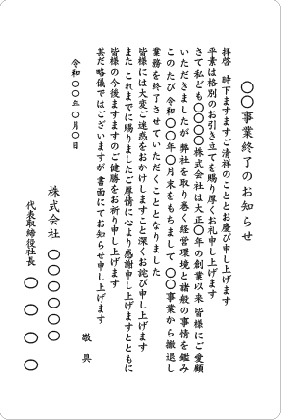 〇〇事業終了のお知らせ
拝啓　時下ますますご清祥のこととお慶び申し上げます
平素は格別のお引き立てを賜り厚くお礼申し上げます
さて私ども〇〇〇〇株式会社は大正〇年の創業以来 皆様にご愛顧
いただきましたが 弊社を取り巻く経営環境と諸般の事情を鑑み
このたび 令和〇〇年〇月末をもちまして 〇〇事業から撤退し
業務を終了させていただくこととなりました
皆様には大変ご迷惑をおかけしますこと深くお詫び申し上げます
また これまでに賜りましたご厚情に心より感謝申し上げますとともに
皆様の今後ますますのご健勝をお祈り申し上げます
甚だ略儀ではございますが書面にてお知らせ申し上げます
敬　具
令和〇〇年〇月〇日
株式会社　〇〇〇〇〇〇
代表取締役社長　〇　〇　〇　〇